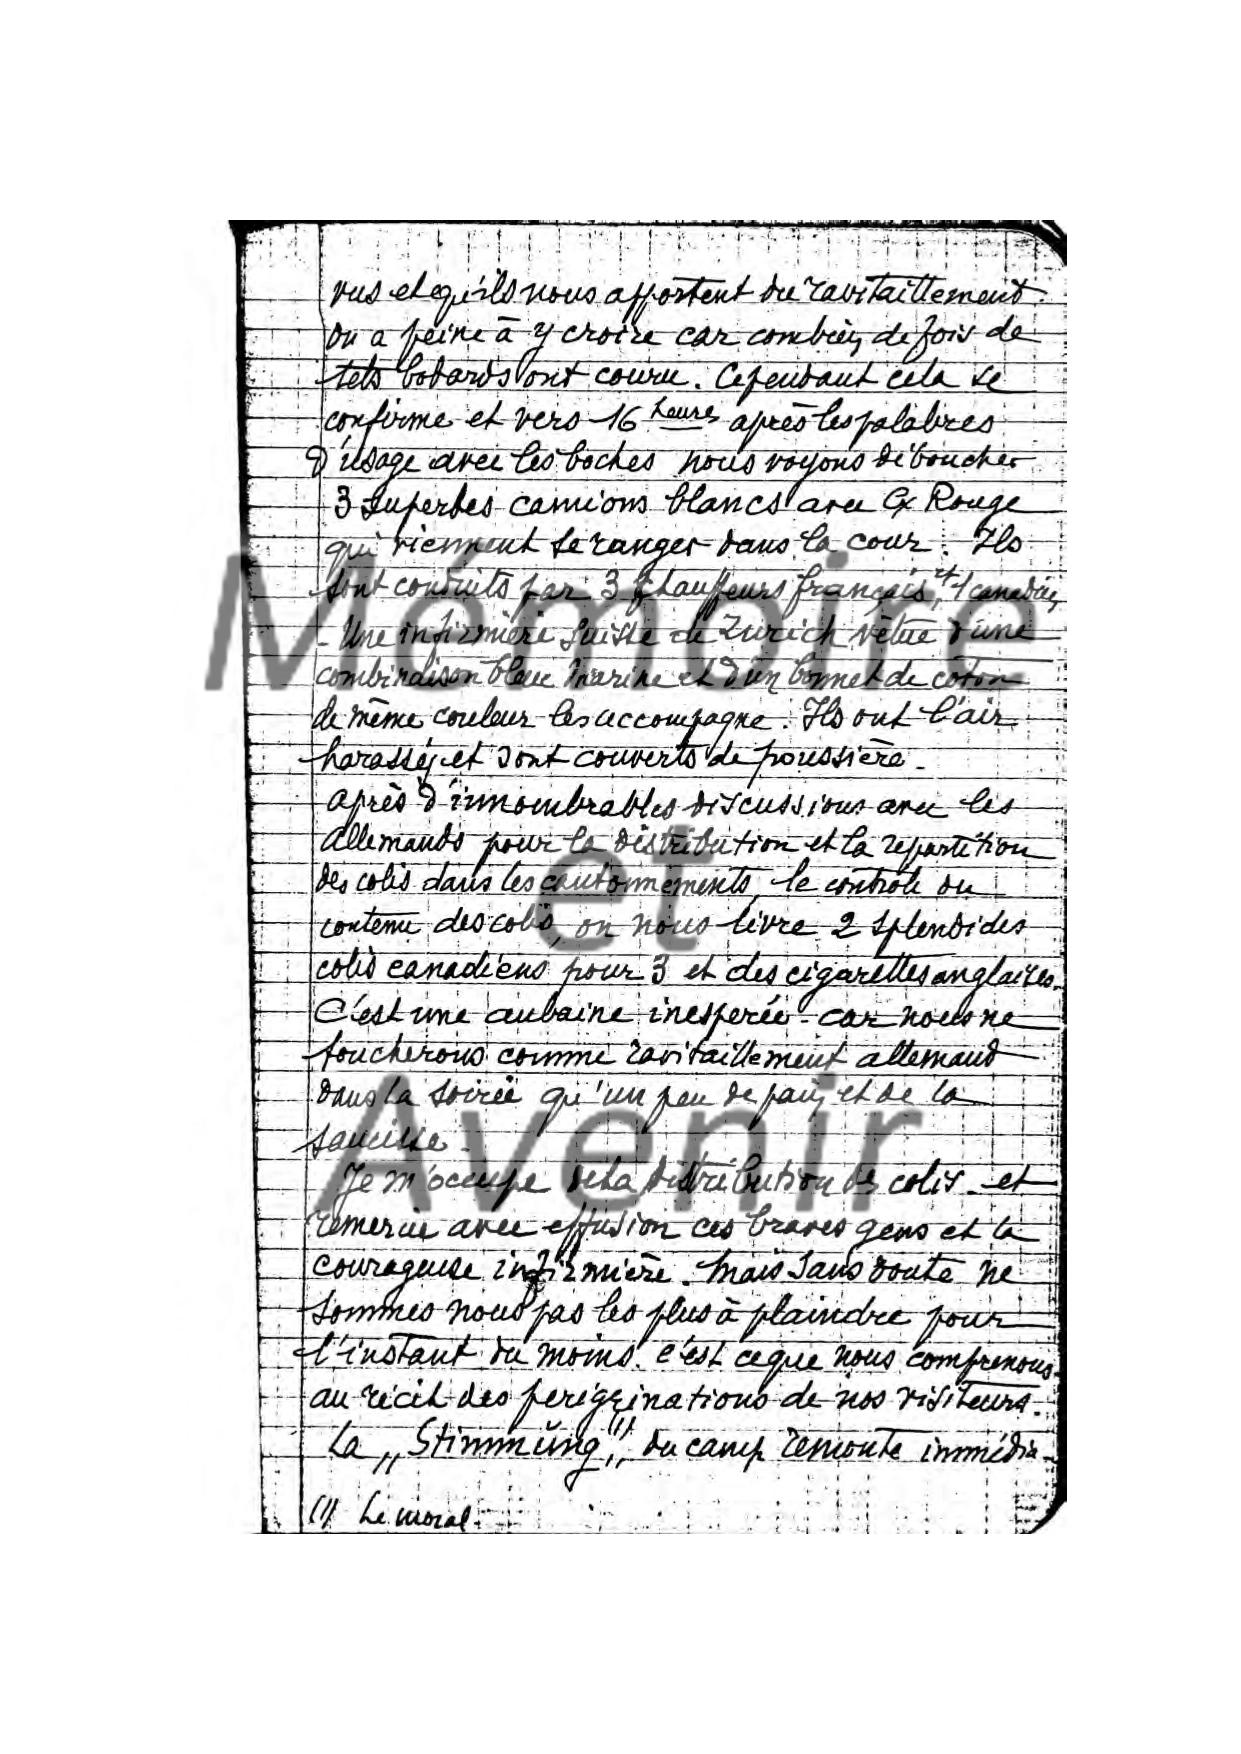 vus et qu'ils nous apportent du ravitaillement.
On a peine à y croire car combien de fois de
tels bobards ont couru. Cependant cela se
confirme et vers 16 heures après les palabres
d'usage avec les boches nous voyons déboucher
3 superbes camions blancs avec Cx Rouge
qui viennent se ranger dans la cour. Ils
sont conduits par 3 chauffeurs français, et 1 canadien
- Une infirmière Suisse de Zurich vêtue d'une
combinaison bleue marine et d'un bonnet de coton
de même couleur les accompagne. Ils ont l'air
harassés et sont couverts de poussière.
après d'innombrables discussions avec les
allemands pour la distribution et la repartition
des colis dans les cantonnements, le contrôle du
contenu des colis, on nous livre 2 splendides
colis canadiens pour 3 et des cigarettes anglaises.
C'est une aubaine inespérée - car nous ne
toucherons comme ravitaillement allemand
dans la soirée qu'un peu de pain et de la
saucisse.
Je m'occupe de la distribution des colis - et
remercie avec effusion ces braves gens et la
courageuse infirmière. Mais sans doute ne
sommes nous pas les plus à plaindre pour
l'instant du moins. c'est ce que nous comprenons
au récit des perégrinations de nos visiteurs.
La „Stimmŭng" (1) du camp remonte immédia-
(1) Le moral.
Mémoire
et
Avenir